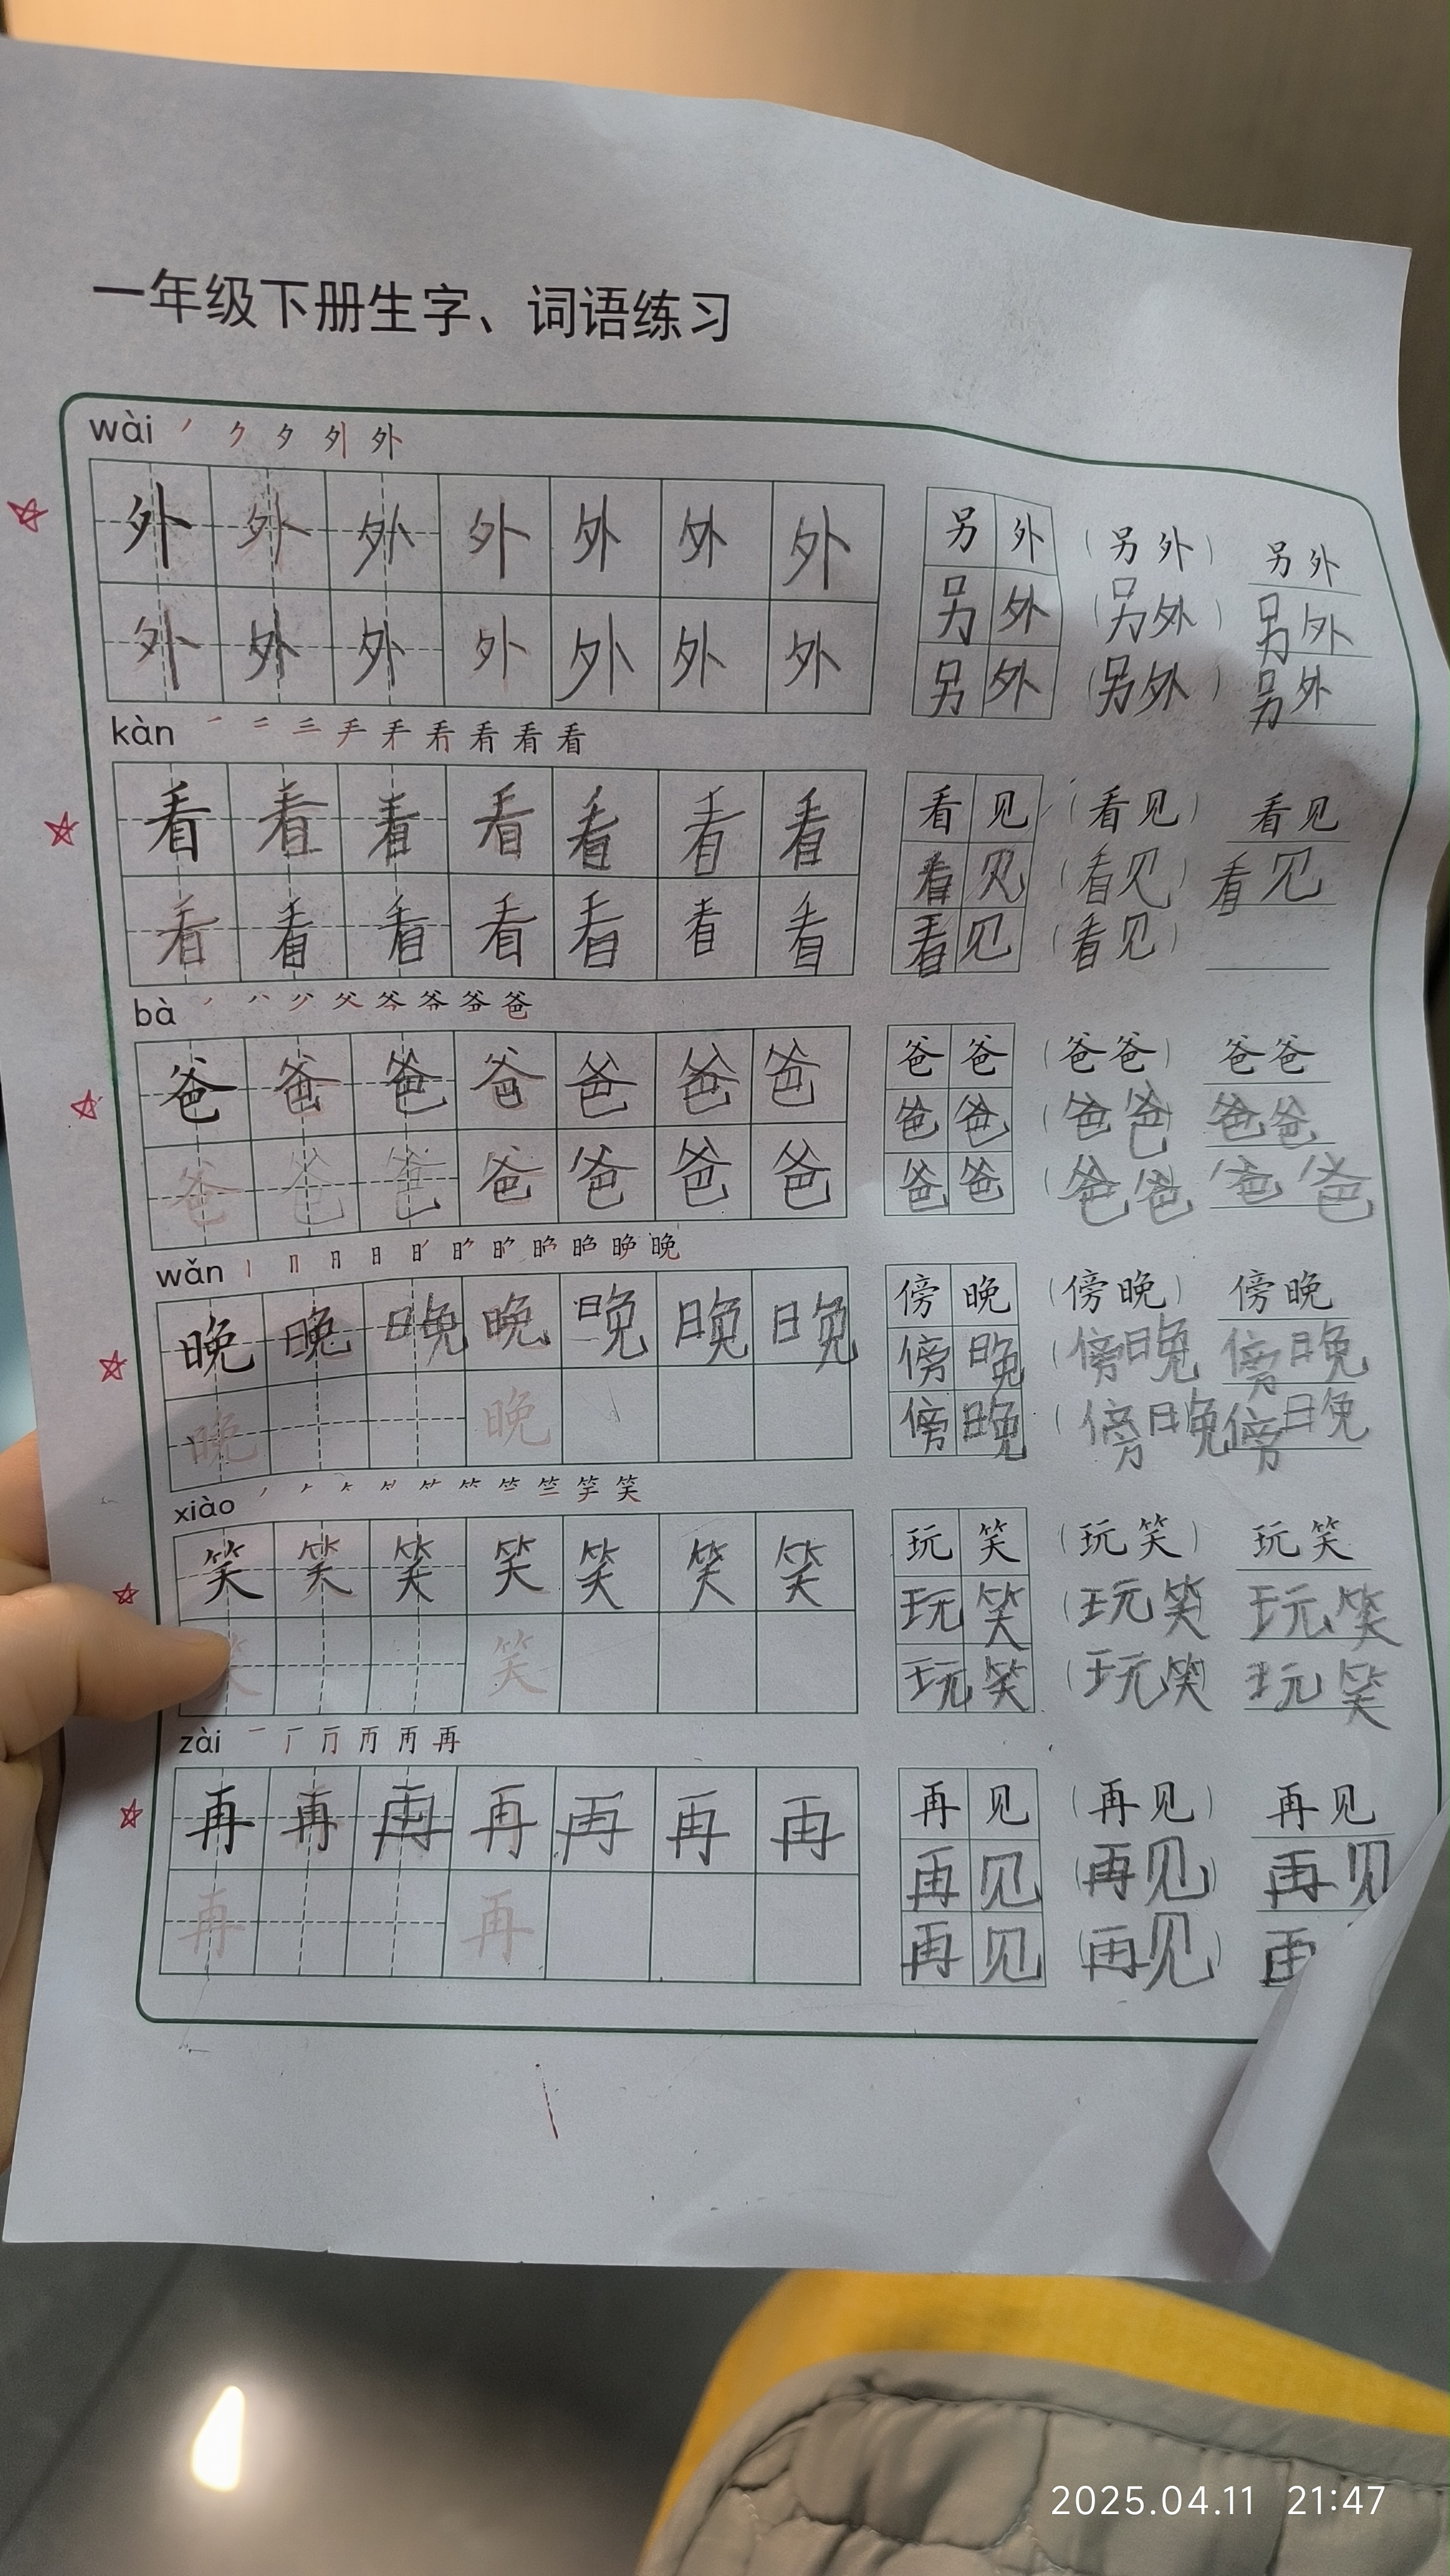 一年级下册生字、词语练习
wài
外 外 外 外 外 外 外 另 外 (另 外) 另 外
另 外 (另外) 另外
外 外 外 外 外 外 外 另 外 (另外) 另外
kàn
看 看 看 看 看 看 看 看 见 (看 见) 看 见
看 见 (看见) 看见
看 看 看 看 看 看 看 看 见 (看见)
bà
爸 爸 爸 爸 爸 爸 爸 爸 爸 (爸爸) 爸爸
爸 爸 (爸爸) 爸爸
爸 爸 爸 爸 爸 爸 爸 爸 爸 (爸爸 爸爸
wǎn
晚 晚 晚 晚 晚 晚 晚 傍 晚 (傍 晚) 傍 晚
傍 晚 (傍晚 傍晚
晚 晚 傍 晚 (傍晚 傍晚
xiào
笑 笑 笑 笑 笑 笑 笑 玩 笑 (玩 笑) 玩 笑
玩 笑 (玩笑 玩笑
笑 笑 玩 笑 (玩笑 玩笑
zài
再 再 再 再 再 再 再 再 见 (再 见) 再 见
再 见 (再见) 再见
再 再 再 见 (再见) 再
2025.04.11 21:47